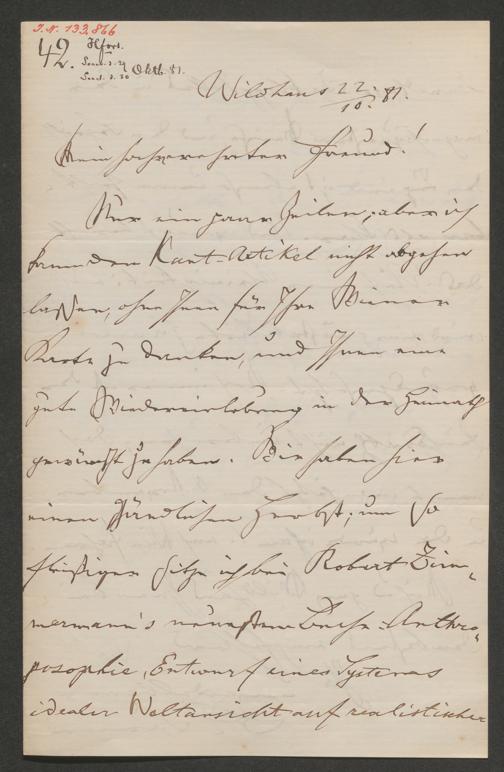 I.N. 133.866
42.
Okt. 81.
Wildhaus 22./10. 81.
Mein hochverehrter Freund!
Nur ein paar Zeilen, aber ich
kann den Kant-Artikel nicht abgehen
lassen, ohne Ihnen für Ihre Wiener
Karte zu danken, und Ihnen eine
gute Wiedereinlebung in der Heimath
gewünscht zu haben. Wir haben hier
einen schändlichen Herbst; um so
fleißiger sitze ich bei Robert Zim-
mermann's neuestem Buche: Anthro-
posophie, Entwurf eines Systemes
idealer Weltansicht auf realistischer